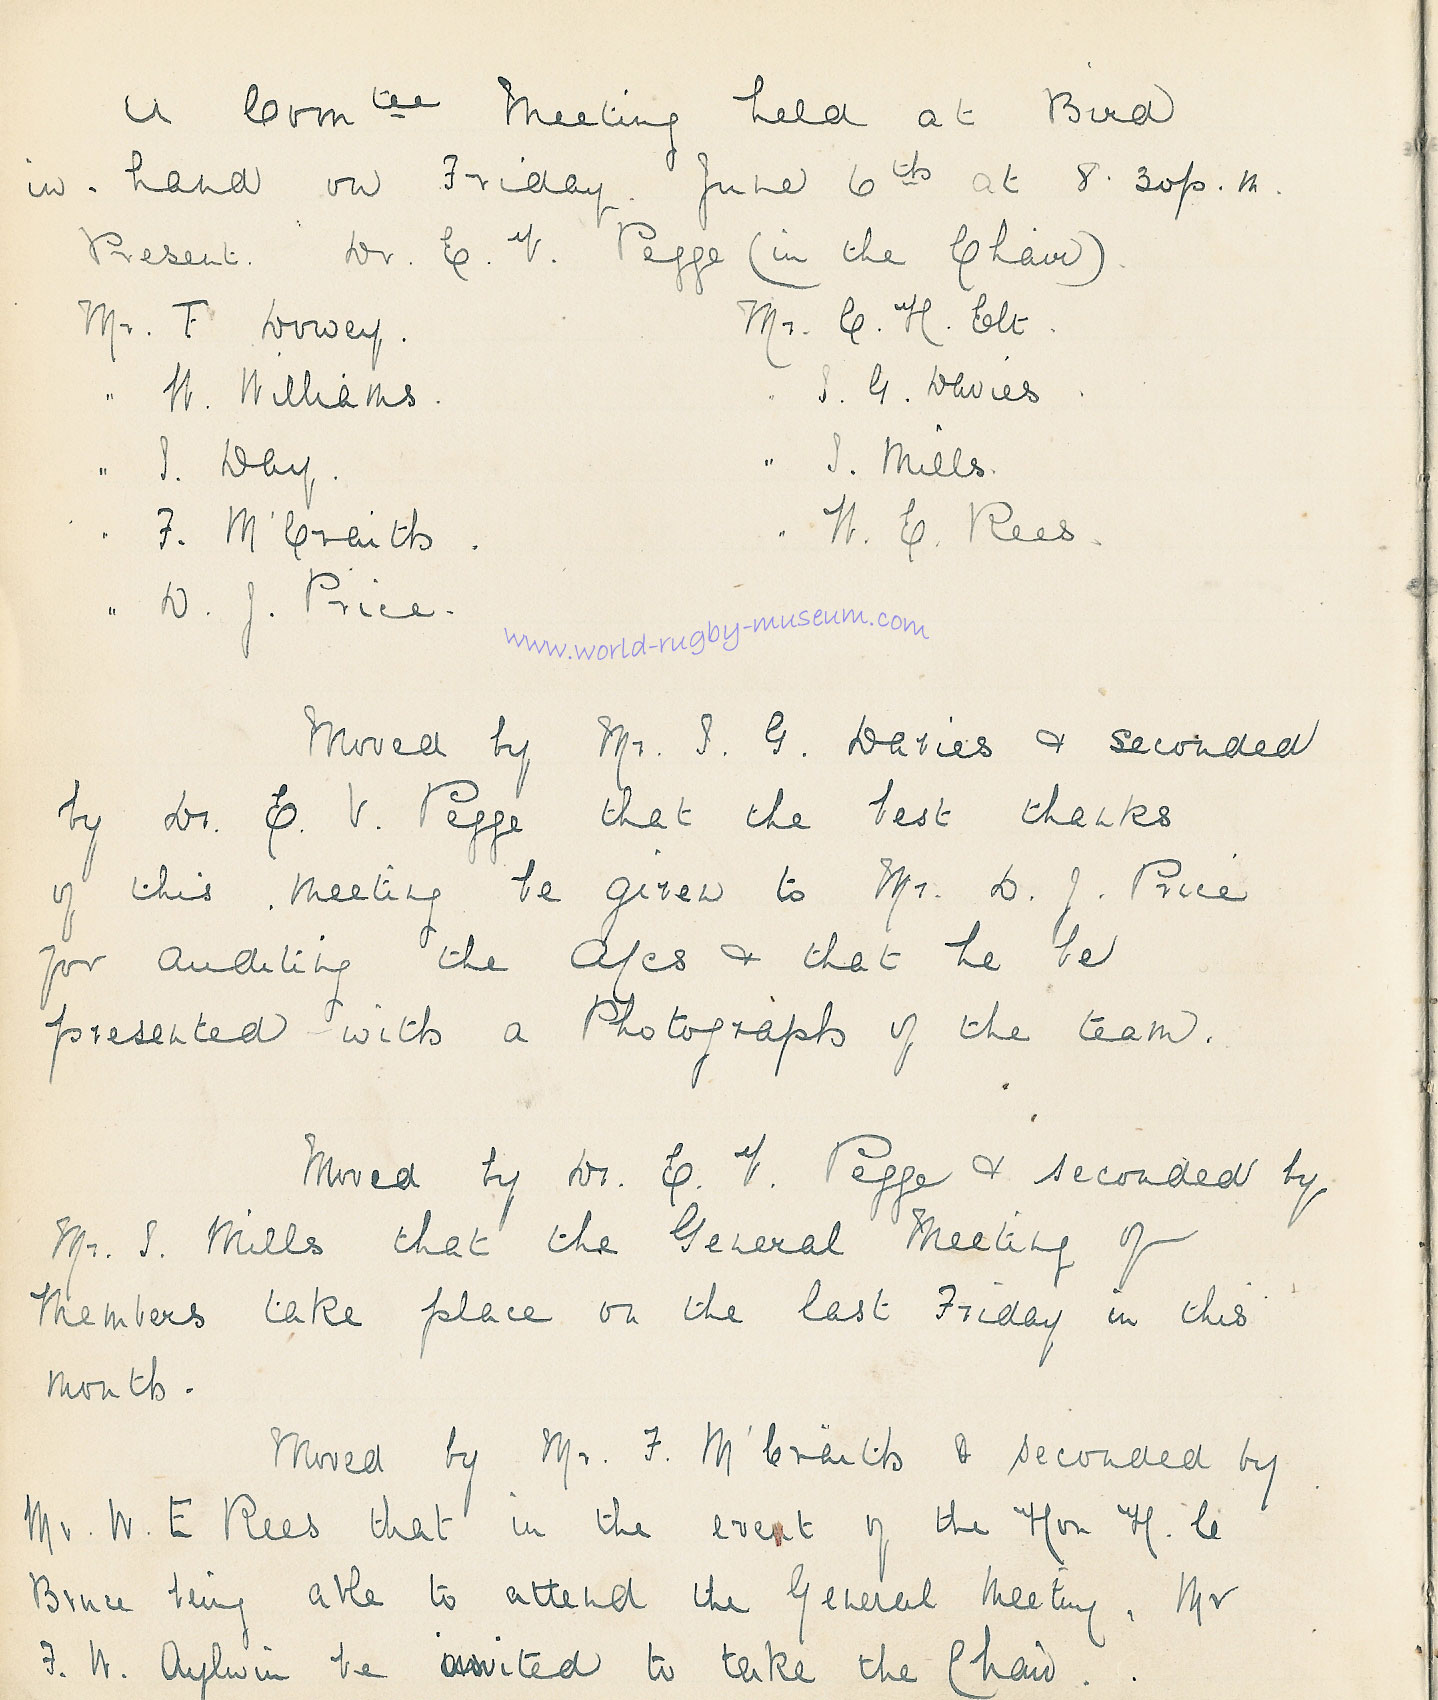 A Com tee Meeting held at Bird
in-hand on Friday June 6th at 8.30p.m.
Present. Dr. E. V. Pegge (in the Chair).
Mr. F Dovey. Mr. C. H. Elt.
" W. Williams. " S. G. Davies.
" S. Day. " S. Mills.
" F. M'Craith. " W. E. Rees.
" D. J. Price.
www.world-rugby-museum.com
Moved by Mr. S. G. Davies & seconded
by Dr. E. V. Pegge that the best thanks
of this meeting be given to Mr. D. J. Price
for auditing the A/cs & that he be
presented with a Photograph of the team.
Moved by Dr. E. V. Pegge & seconded by
Mr. S. Mills that the General Meeting of
Members take place on the last Friday in this
month.
Moved by Mr. F. M'Craith & seconded by
Mr. W. E Rees that in the event of the Hon H. C
Bruce being able to attend the General Meeting, Mr
F. W. Aylwin be invited to take the Chair.